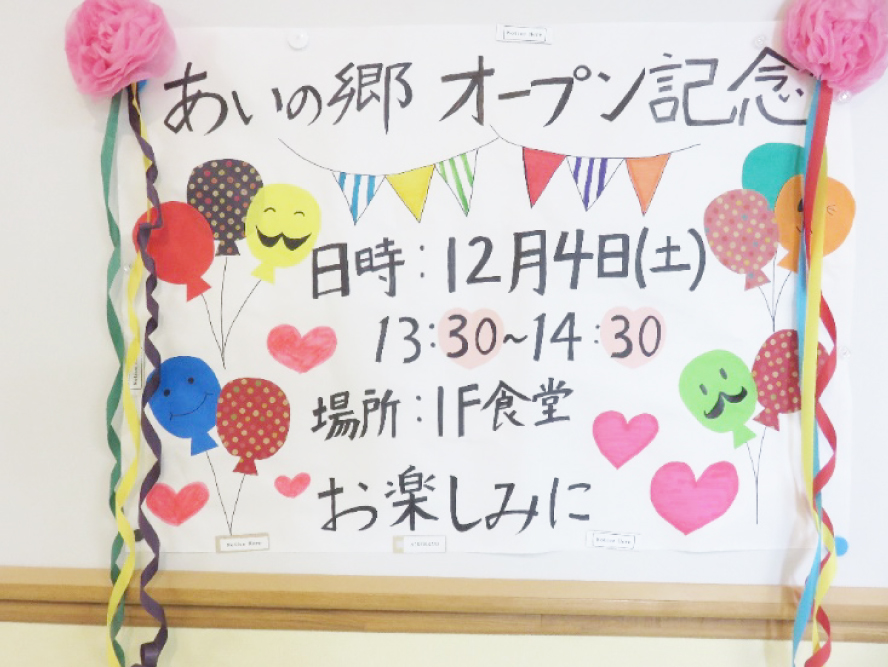 あいの郷 オープン記念
日時:12月4日(土)
13:30~14:30
場所:1F食堂
お楽しみに